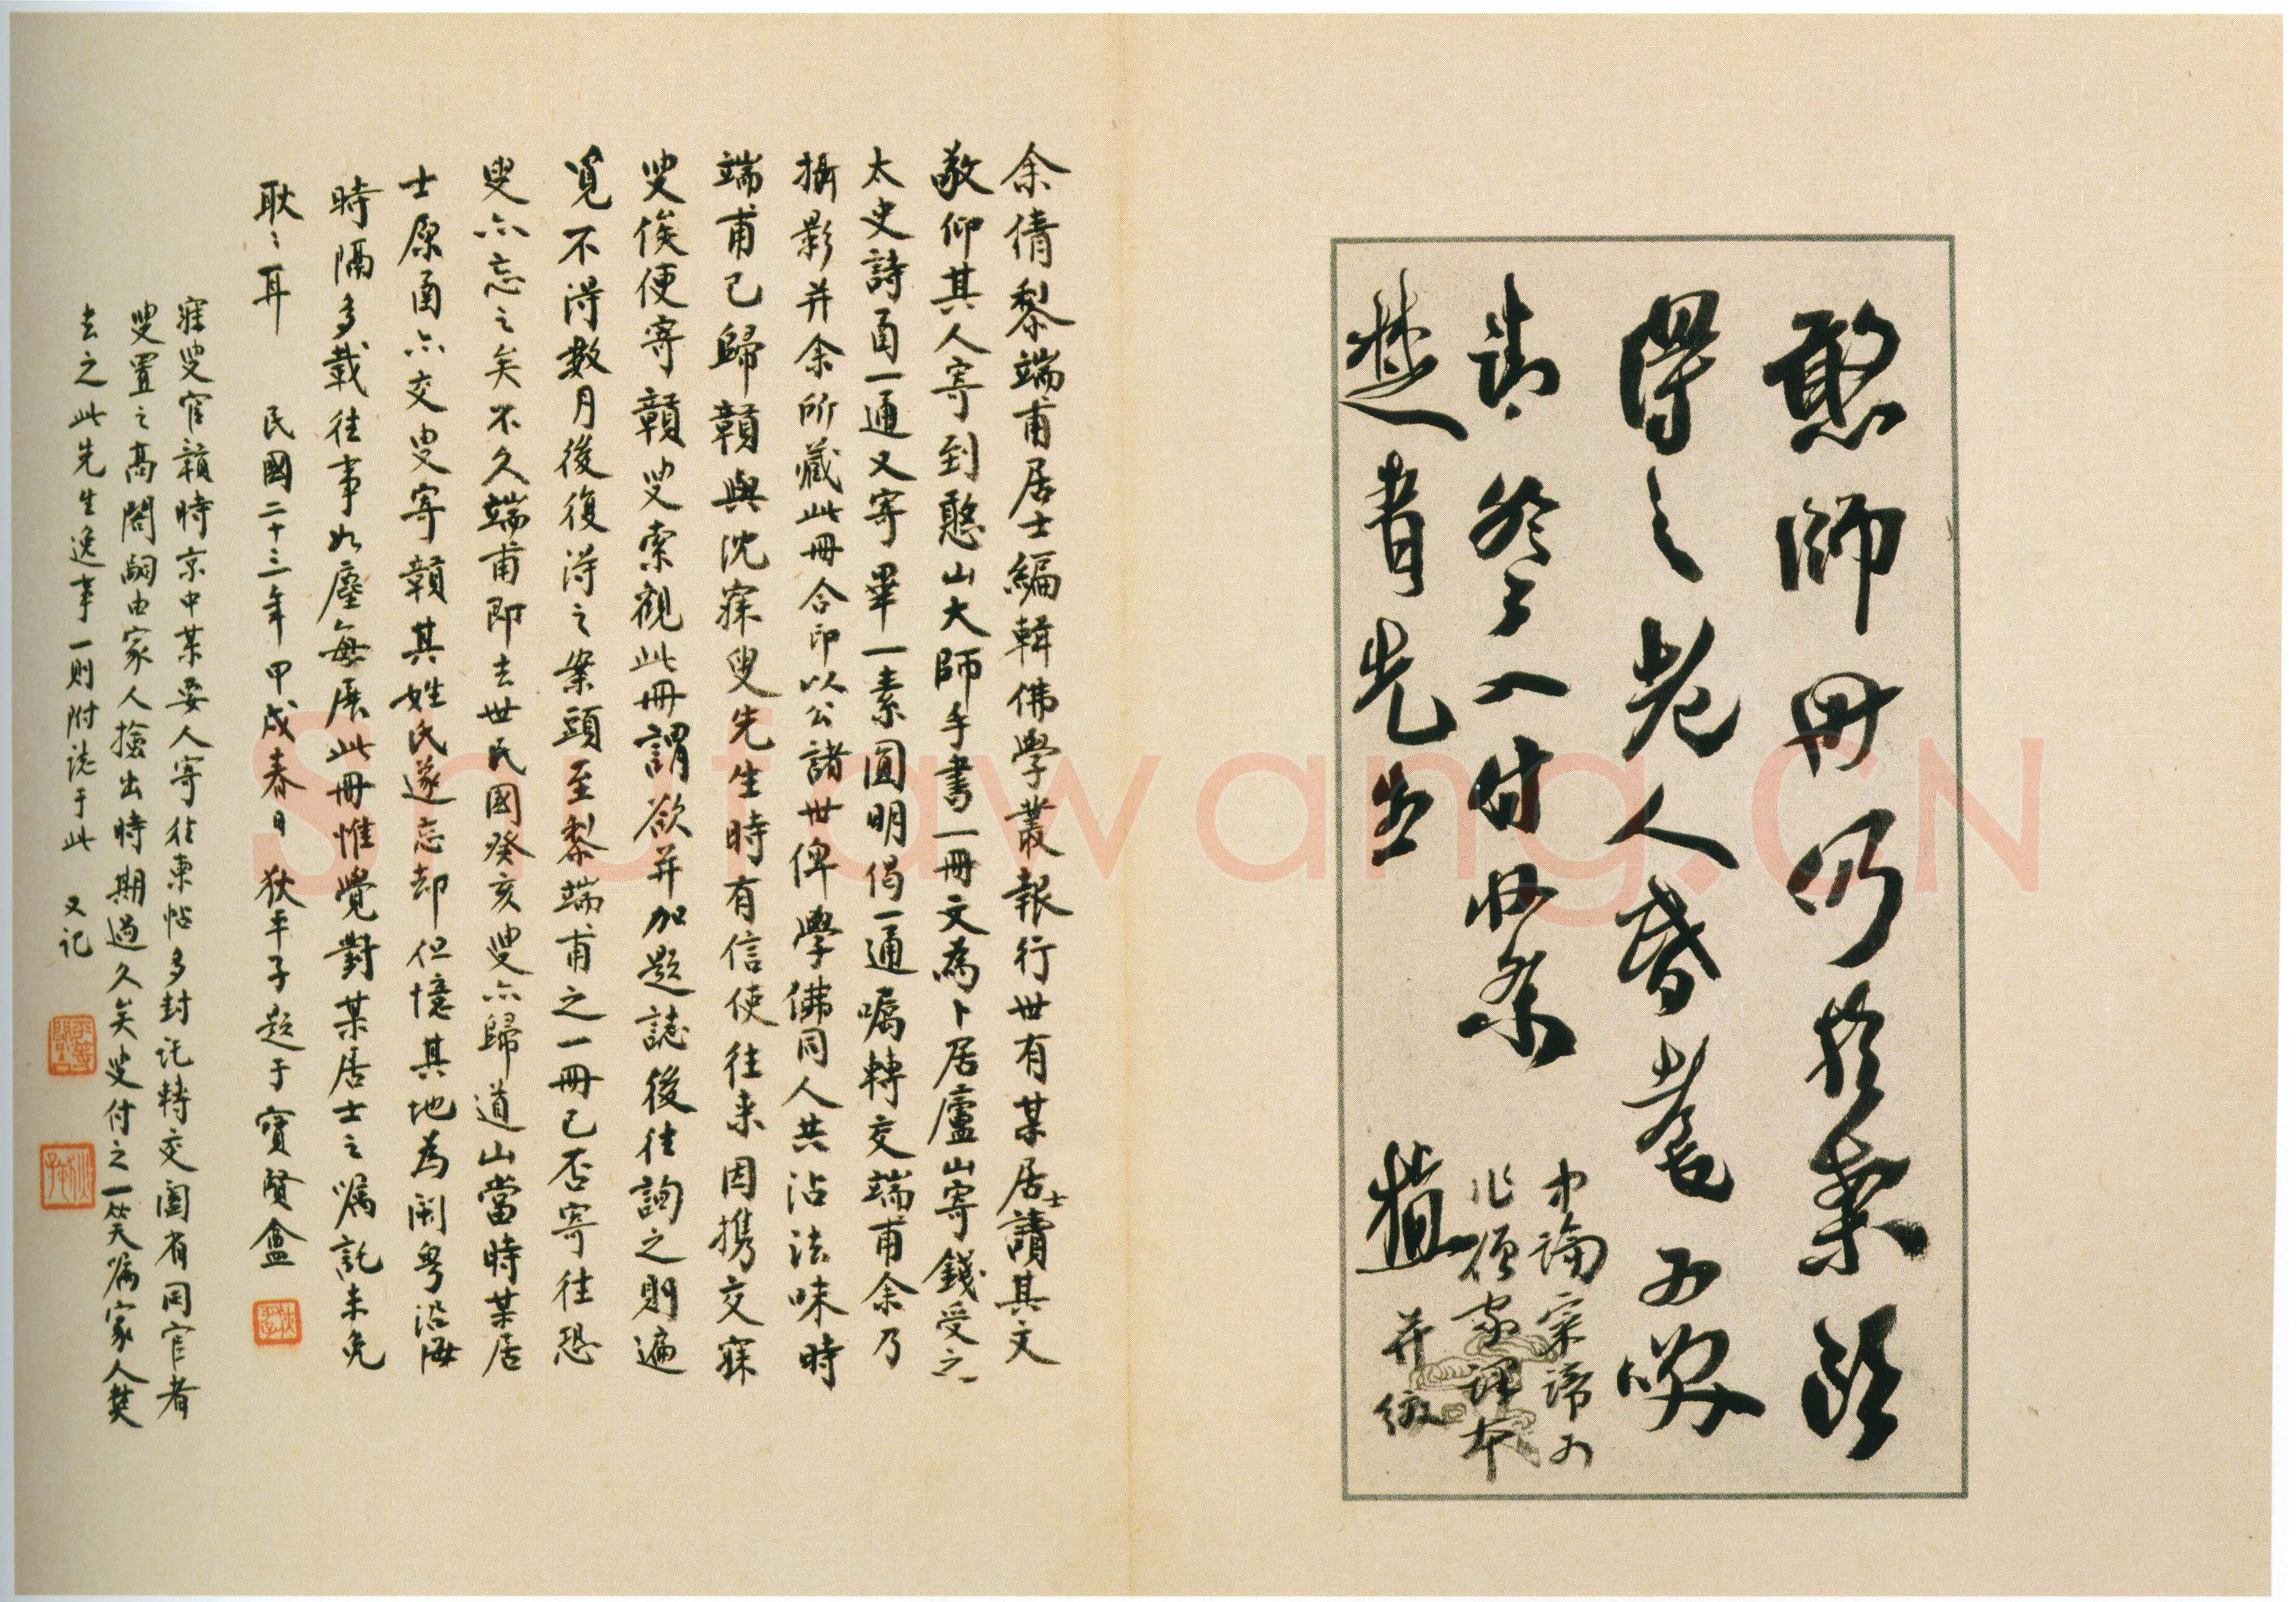 憨師册仍於案頭
得之老人昏耄可笑
請答一付收條
楚青先生
植
中論宗諦
并繳
余倩黎端甫居士編輯佛學叢報行世有某居士讀其文
敬仰其人寄到憨山大師手書一冊文為卜居廬山寄錢受之
太史詩函一通又寄畢一素圓明偈一通囑轉交端甫余乃
攝影并余所藏此冊合印以公諸世俾學佛同人共沾法味時
端甫已歸贛與沈寐叟先生時有信使往来因携交寐
叟俟便寄贛叟索觀此冊謂欲并加題誌後往詢之則遍
覓不得數月後復得之案頭至黎端甫之一冊已否寄往恐
叟亦忘之矣不久端甫即去世民國癸亥叟亦歸道山當時某居
士原函亦交叟寄贛其姓氏遂忘却但憶其地為閩粤沿海
時隔多載往事如塵每展此冊惟覺對某居士之囑託未免
耿〻耳 民國二十三年甲戌春日 狄平子題于寶賢盦
寐叟官贛時京中某要人寄往柬帖多封託轉交闔省同官者
叟置之高閣嗣由家人撿出時期過久矣叟付之一笑囑家人焚
去之此先生逸事一則附誌于此 又記
Shufawang.CN